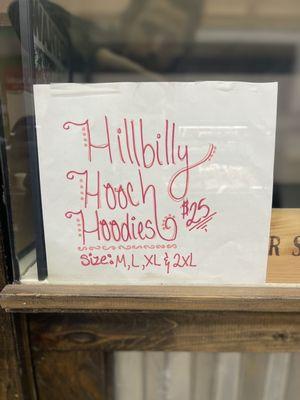 Hillbilly
Hooch
Hoodies
$25
Size: M, L, XL & 2XL